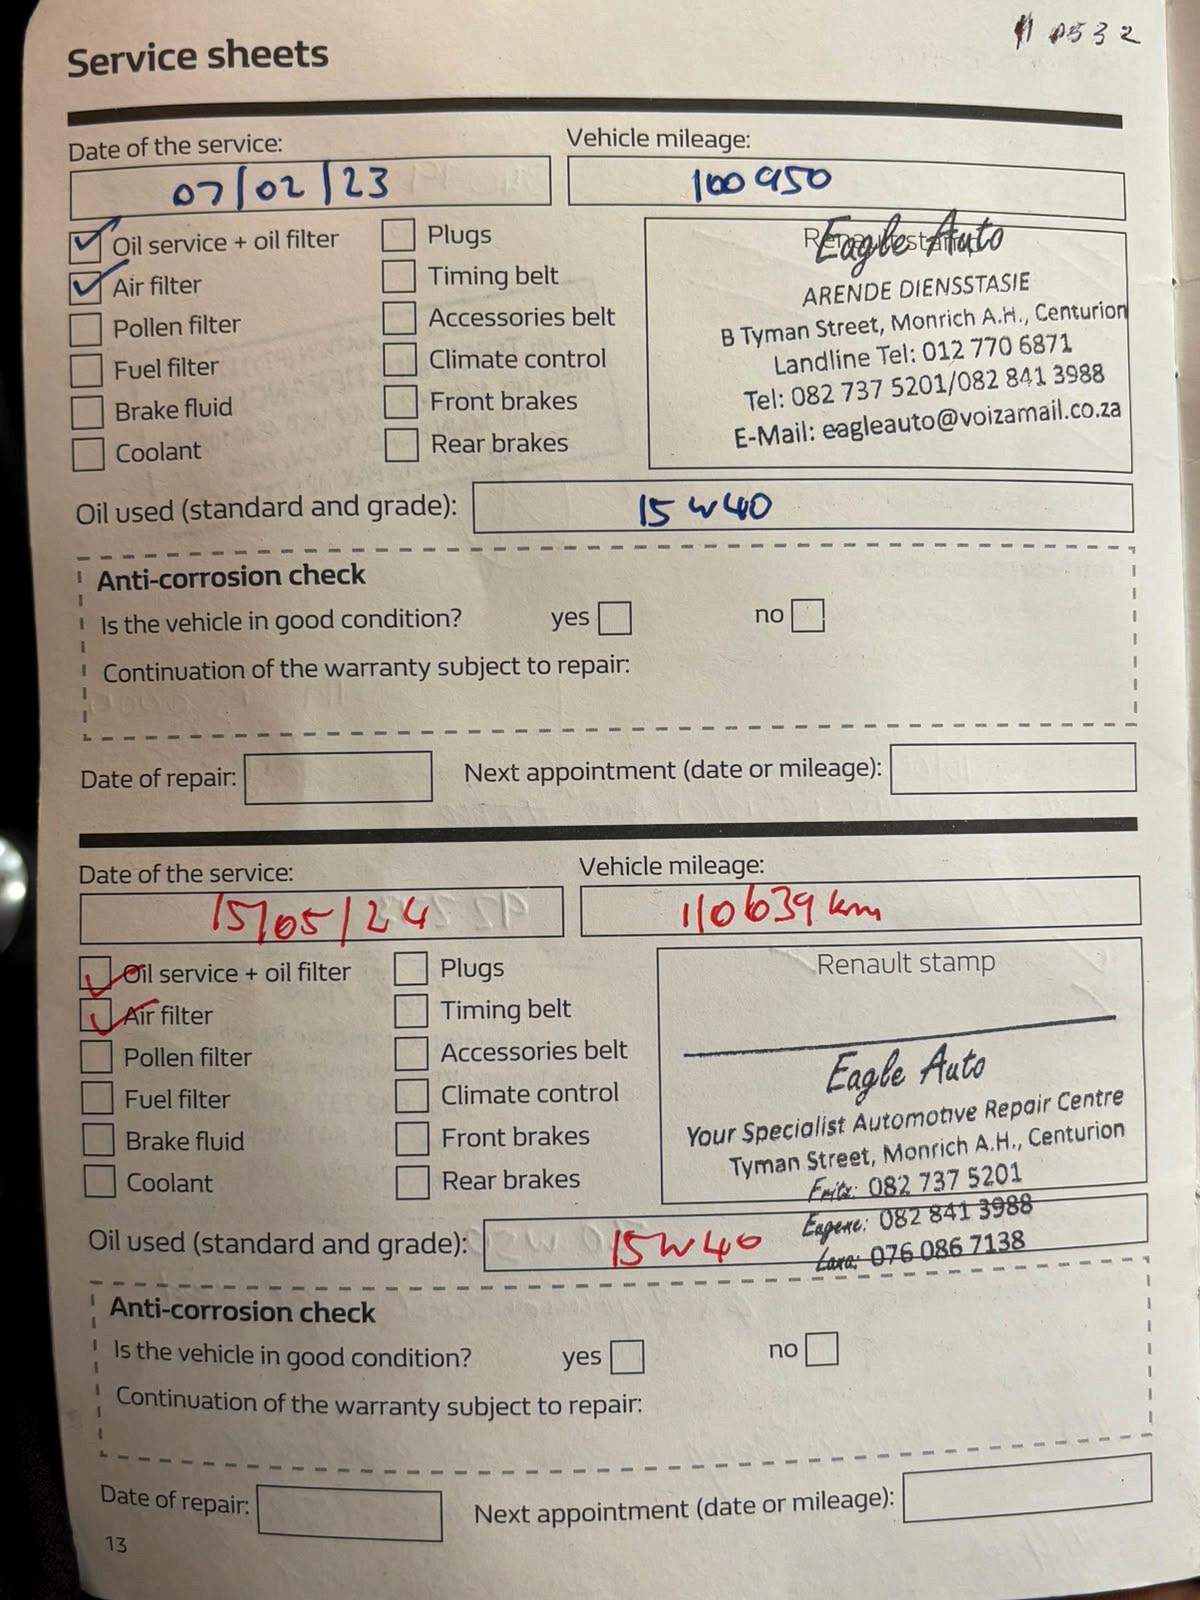 0532
Service sheets
Date of the service: Vehicle mileage:
07/02/23 100950
Oil service + oil filter Plugs
Air filter Timing belt
Pollen filter Accessories belt
Fuel filter Climate control
Brake fluid Front brakes
Coolant Rear brakes
Renault stamp
Eagle Auto
ARENDE DIENSSTASIE
B Tyman Street, Monrich A.H., Centurion
Landline Tel: 012 770 6871
Tel: 082 737 5201/082 841 3988
E-Mail: eagleauto@voizamail.co.za
Oil used (standard and grade): 15w40
Anti-corrosion check
Is the vehicle in good condition? yes no
Continuation of the warranty subject to repair:
Date of repair: Next appointment (date or mileage):
Date of the service: Vehicle mileage:
15/05/24 110639 km
Oil service + oil filter Plugs
Air filter Timing belt
Pollen filter Accessories belt
Fuel filter Climate control
Brake fluid Front brakes
Coolant Rear brakes
Renault stamp
Eagle Auto
Your Specialist Automotive Repair Centre
Tyman Street, Monrich A.H., Centurion
Fritz: 082 737 5201
Eugene: 082 841 3988
Lara: 076 086 7138
Oil used (standard and grade): 15W40
Anti-corrosion check
Is the vehicle in good condition? yes no
Continuation of the warranty subject to repair:
Date of repair: Next appointment (date or mileage):
13